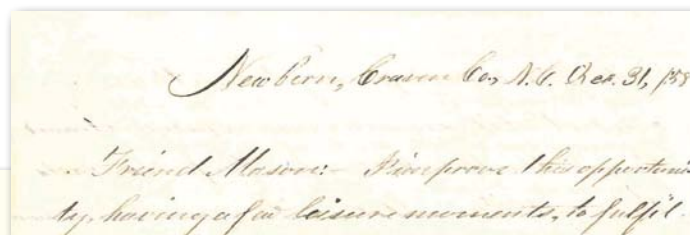 Newbern, Craven Co, N.C. Dec. 31, 185
Friend Mason:- I improve this opportuni
ty, having a few leisure moments, to fulfil